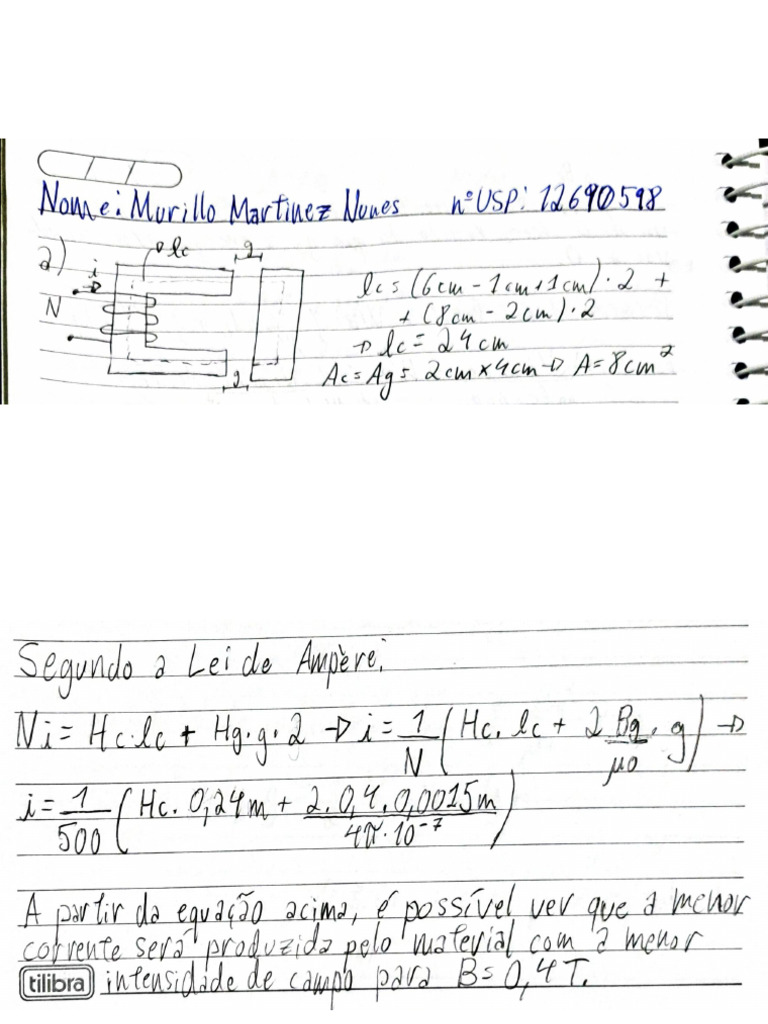 Nome: Murillo Martinez Nunes nº USP: 12690598
a)
lc
g
i
N
g
lc = (6cm - 1cm + 1cm) · 2 +
+ (8cm - 2cm) · 2
→ lc = 24cm
Ac = Ag = 2cm × 4cm → A = 8cm²
Segundo a Lei de Ampère:
Ni = Hc·lc + Hg·g·2 → i = 1/N (Hc·lc + 2 Bg/μo · g) →
i = 1/500 (Hc · 0,24m + 2·0,4·0,0015m / 4π·10⁻⁷)
A partir da equação acima, é possível ver que a menor
corrente será produzida pelo material com a menor
tilibra intensidade de campo para B = 0,4T.